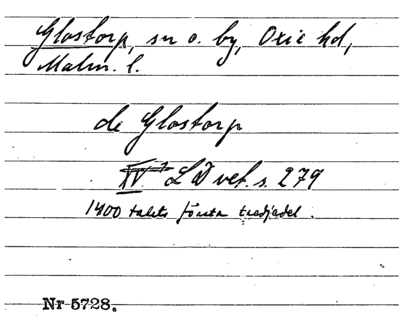 Glostorp, sn o. by, Oxie hd,
Malm. l.
de Glostorp
LD vet. s. 279
1400 talets första tredjedel.
Nr 5728.